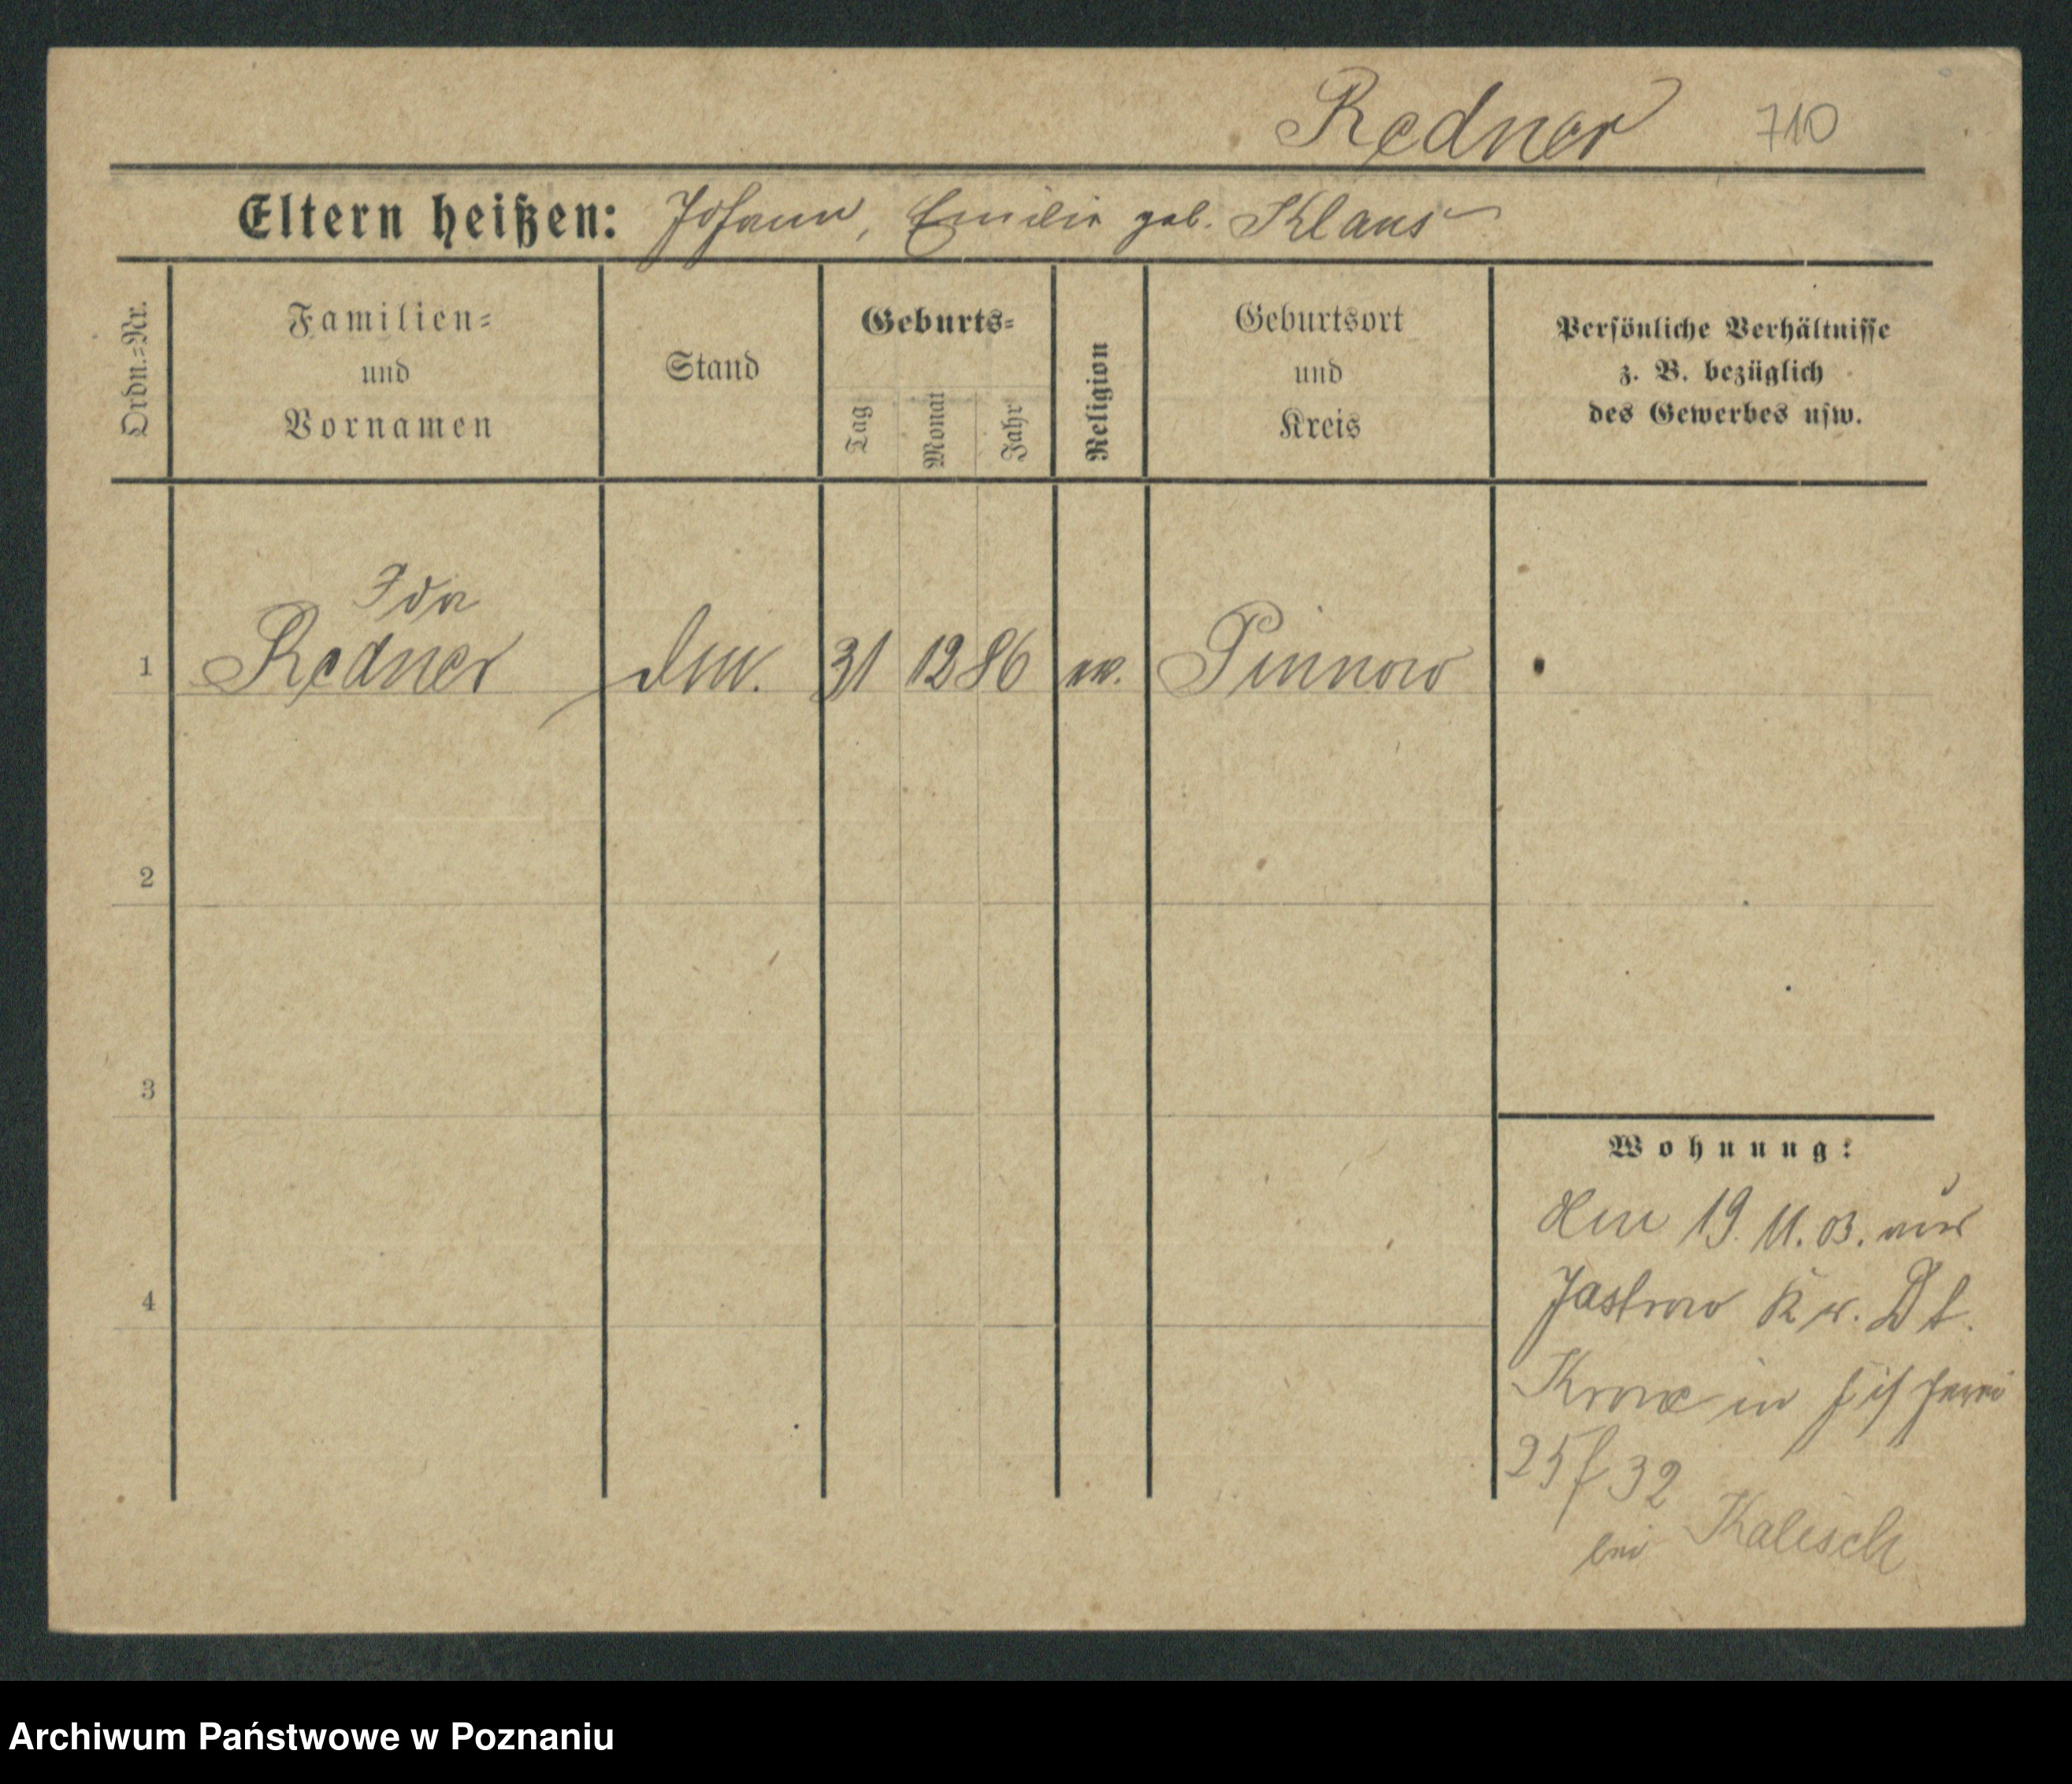 Redner 710
Eltern heißen: Johann, Emilie geb. Klaus
Ordn.-Nr.
Familien-
und
Vornamen
Stand
Geburts-
Tag
Monat
Jahr
Religion
Geburtsort
und
Kreis
Persönliche Verhältnisse
z. B. bezüglich
des Gewerbes usw.
Ida
1 Redner 31 12 86 Pinnow
2
3
4
Wohnung:
19. 11. 03. aus
Jastrow Kr. Dt.
Krone in Fischerei
25/32
bei Kalisch
Archiwum Państwowe w Poznaniu